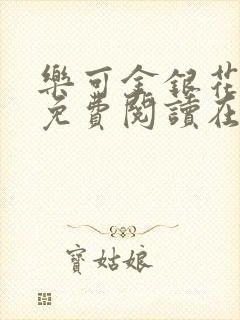 樂可金銀花
免費閱讀在
寶姑娘